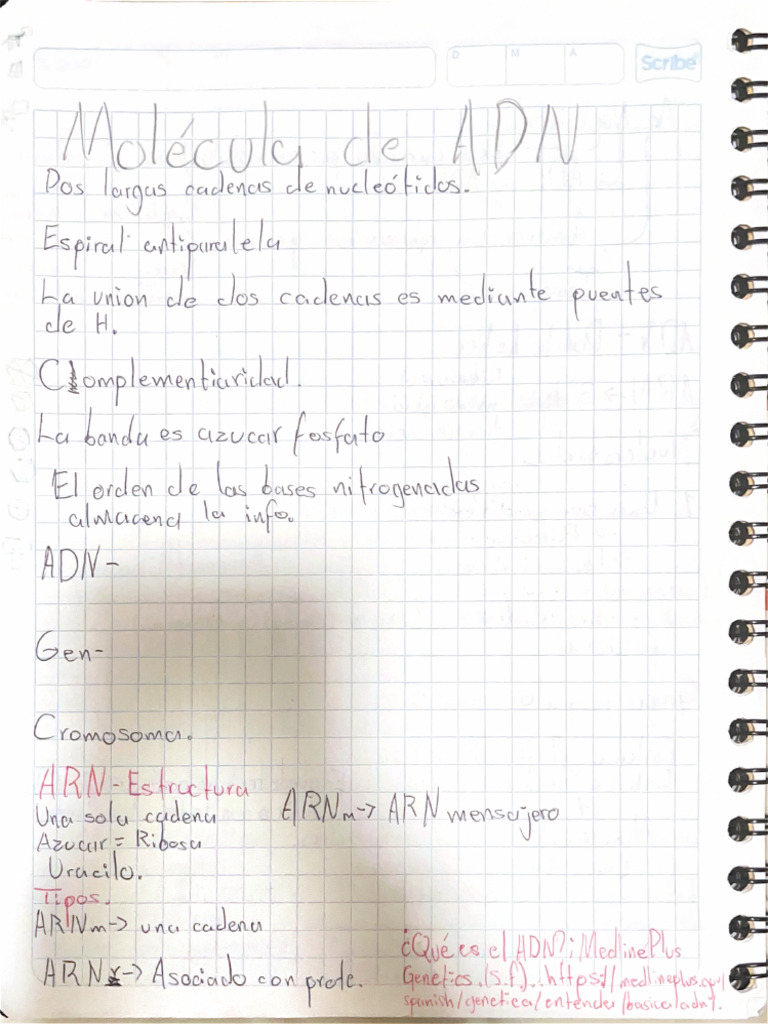 D M A Scribe
Molécula de ADN
Dos largas cadenas de nucleótidos.
Espiral antiparalela
La union de dos cadenas es mediante puentes
de H.
Complementiaridad.
La banda es azucar fosfato
El orden de las bases nitrogenadas
almacena la info.
ADN-
Gen-
Cromosoma.
ARN-Estructura
Una sola cadena
ARNm-> ARN mensajero
Azucar = Ribosa
Uracilo.
Tipos.
ARNm-> una cadena
ARNr-> Asociado con prote.
¿Qué es el ADN?: MedlinePlus
Genetics. (s.f). https://medlineplus.gov/
spanish/genetica/entender/basica/adn/.